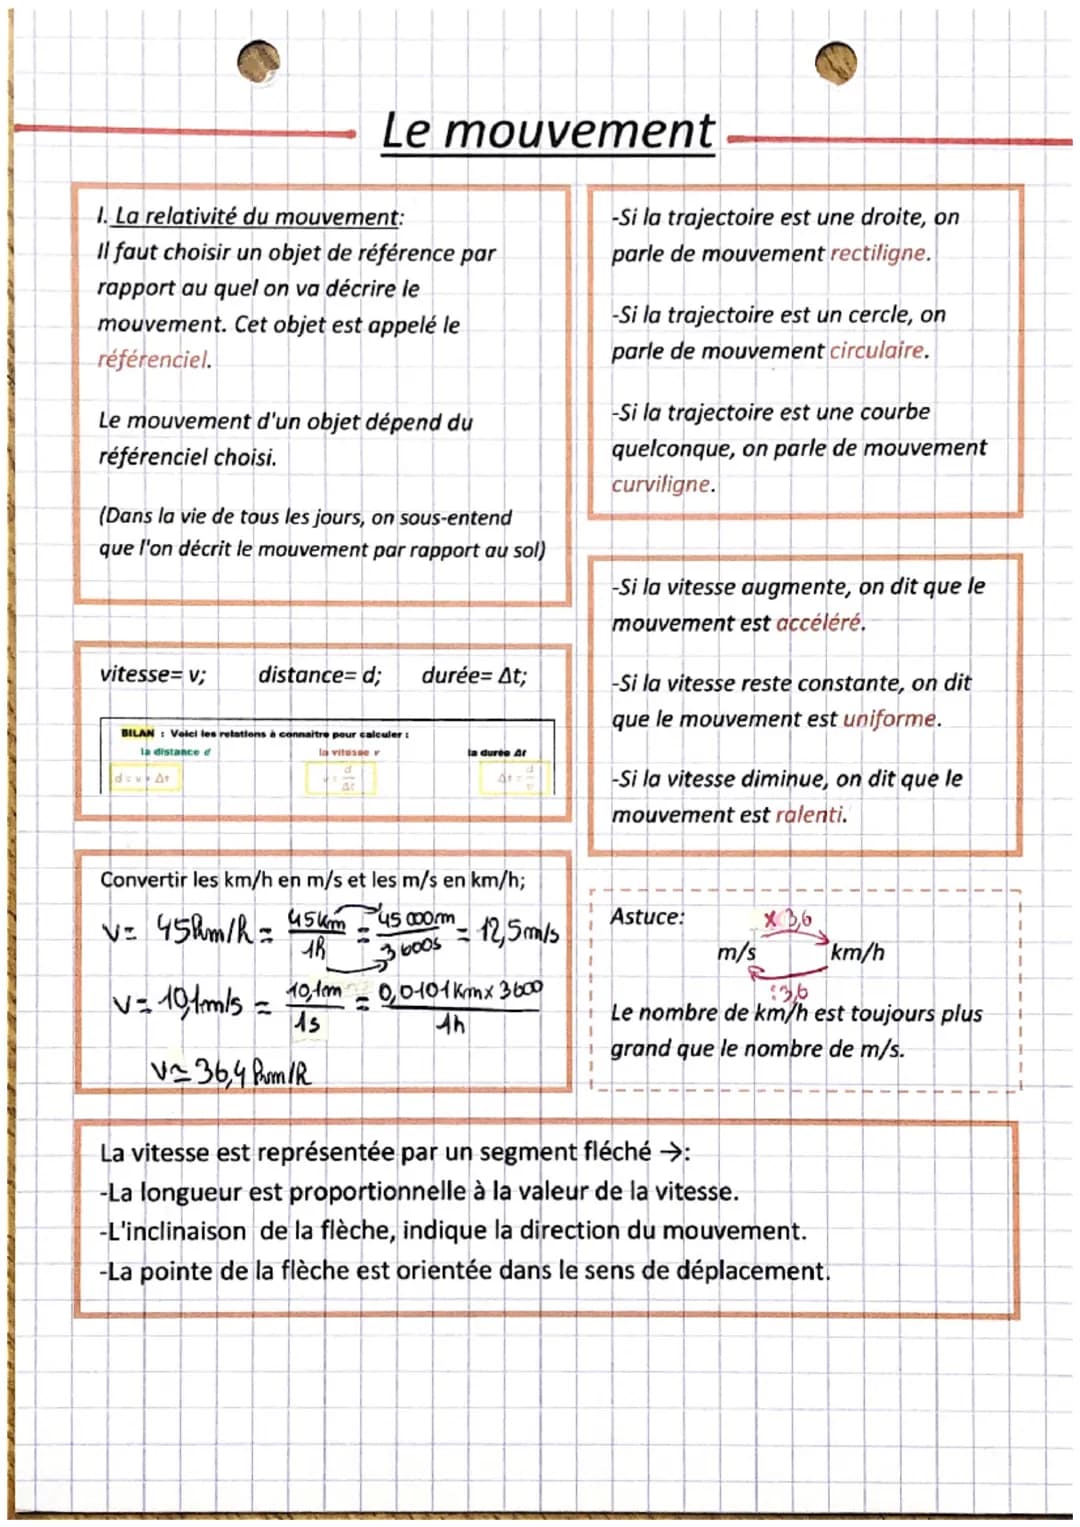 Le mouvement
I. La relativité du mouvement:
Il faut choisir un objet de référence par
rapport au quel on va décrire le
mouvement. Cet objet est appelé le
référenciel.
Le mouvement d'un objet dépend du
référenciel choisi.
(Dans la vie de tous les jours, on sous-entend
que l'on décrit le mouvement par rapport au sol)
-Si la trajectoire est une droite, on
parle de mouvement rectiligne.
-Si la trajectoire est un cercle, on
parle de mouvement circulaire.
-Si la trajectoire est une courbe
quelconque, on parle de mouvement
curviligne.
-Si la vitesse augmente, on dit que le
mouvement est accéléré.
-Si la vitesse reste constante, on dit
que le mouvement est uniforme.
-Si la vitesse diminue, on dit que le
mouvement est ralenti.
vitesse= v; distance= d; durée= Δt;
BILAN : Voici les relations à connaitre pour calculer :
la distance d la vitesse v la durée Δt
d = v × Δt v = d/Δt Δt = d/v
Convertir les km/h en m/s et les m/s en km/h;
V= 45km/h = 45km/1h = 45 000m/3 600s = 12,5m/s
V= 10,1m/s = 10,1m/1s = 0,0101km x 3600/1h
V≃ 36,4 km/h
Astuce:
x 3,6
m/s km/h
:3,6
Le nombre de km/h est toujours plus
grand que le nombre de m/s.
La vitesse est représentée par un segment fléché →:
-La longueur est proportionnelle à la valeur de la vitesse.
-L'inclinaison de la flèche, indique la direction du mouvement.
-La pointe de la flèche est orientée dans le sens de déplacement.